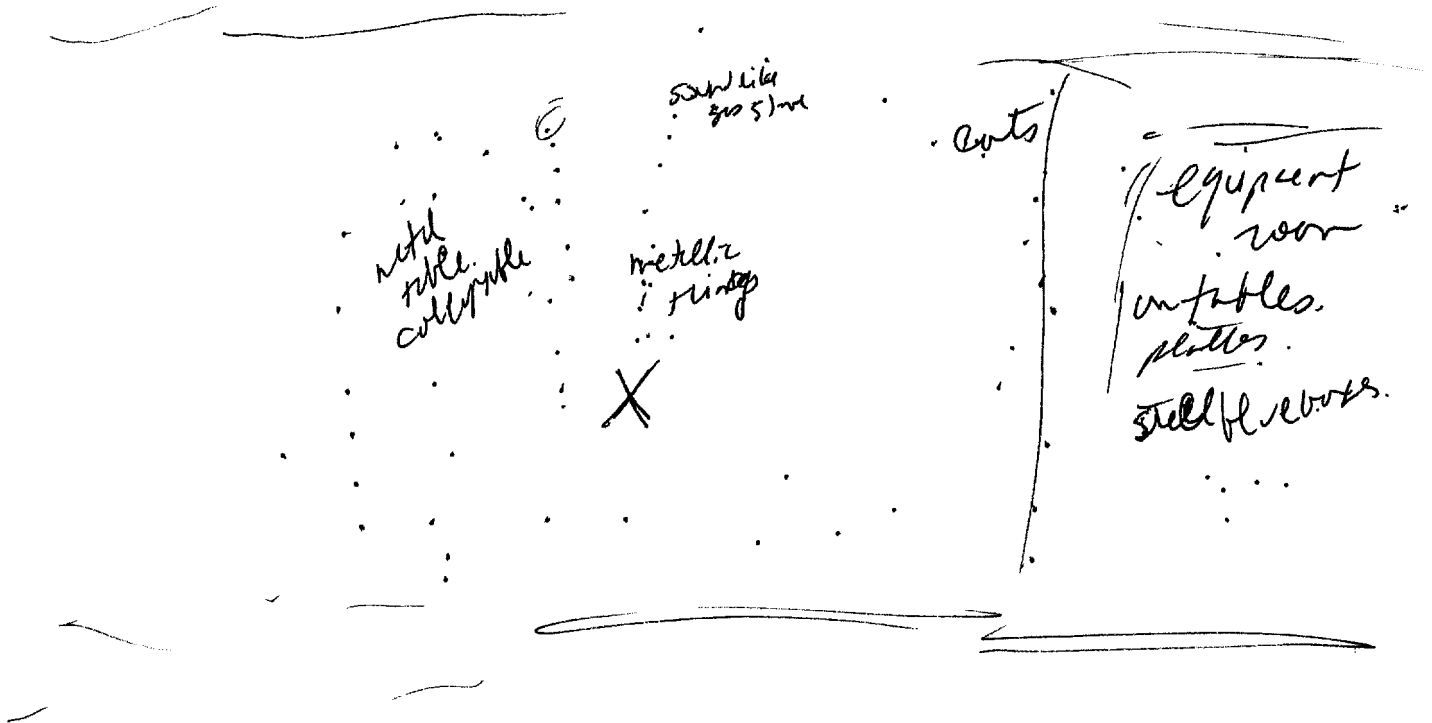 sound like
gas stove
cots
metal
table.
collapsible
metallic
things
X
equipment
room
on tables.
plates.
steel
boxes.